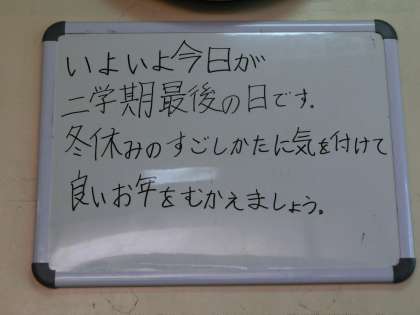 いよいよ今日が
二学期最後の日です.
冬休みのすごしかたに気を付けて
良いお年をむかえましょう。